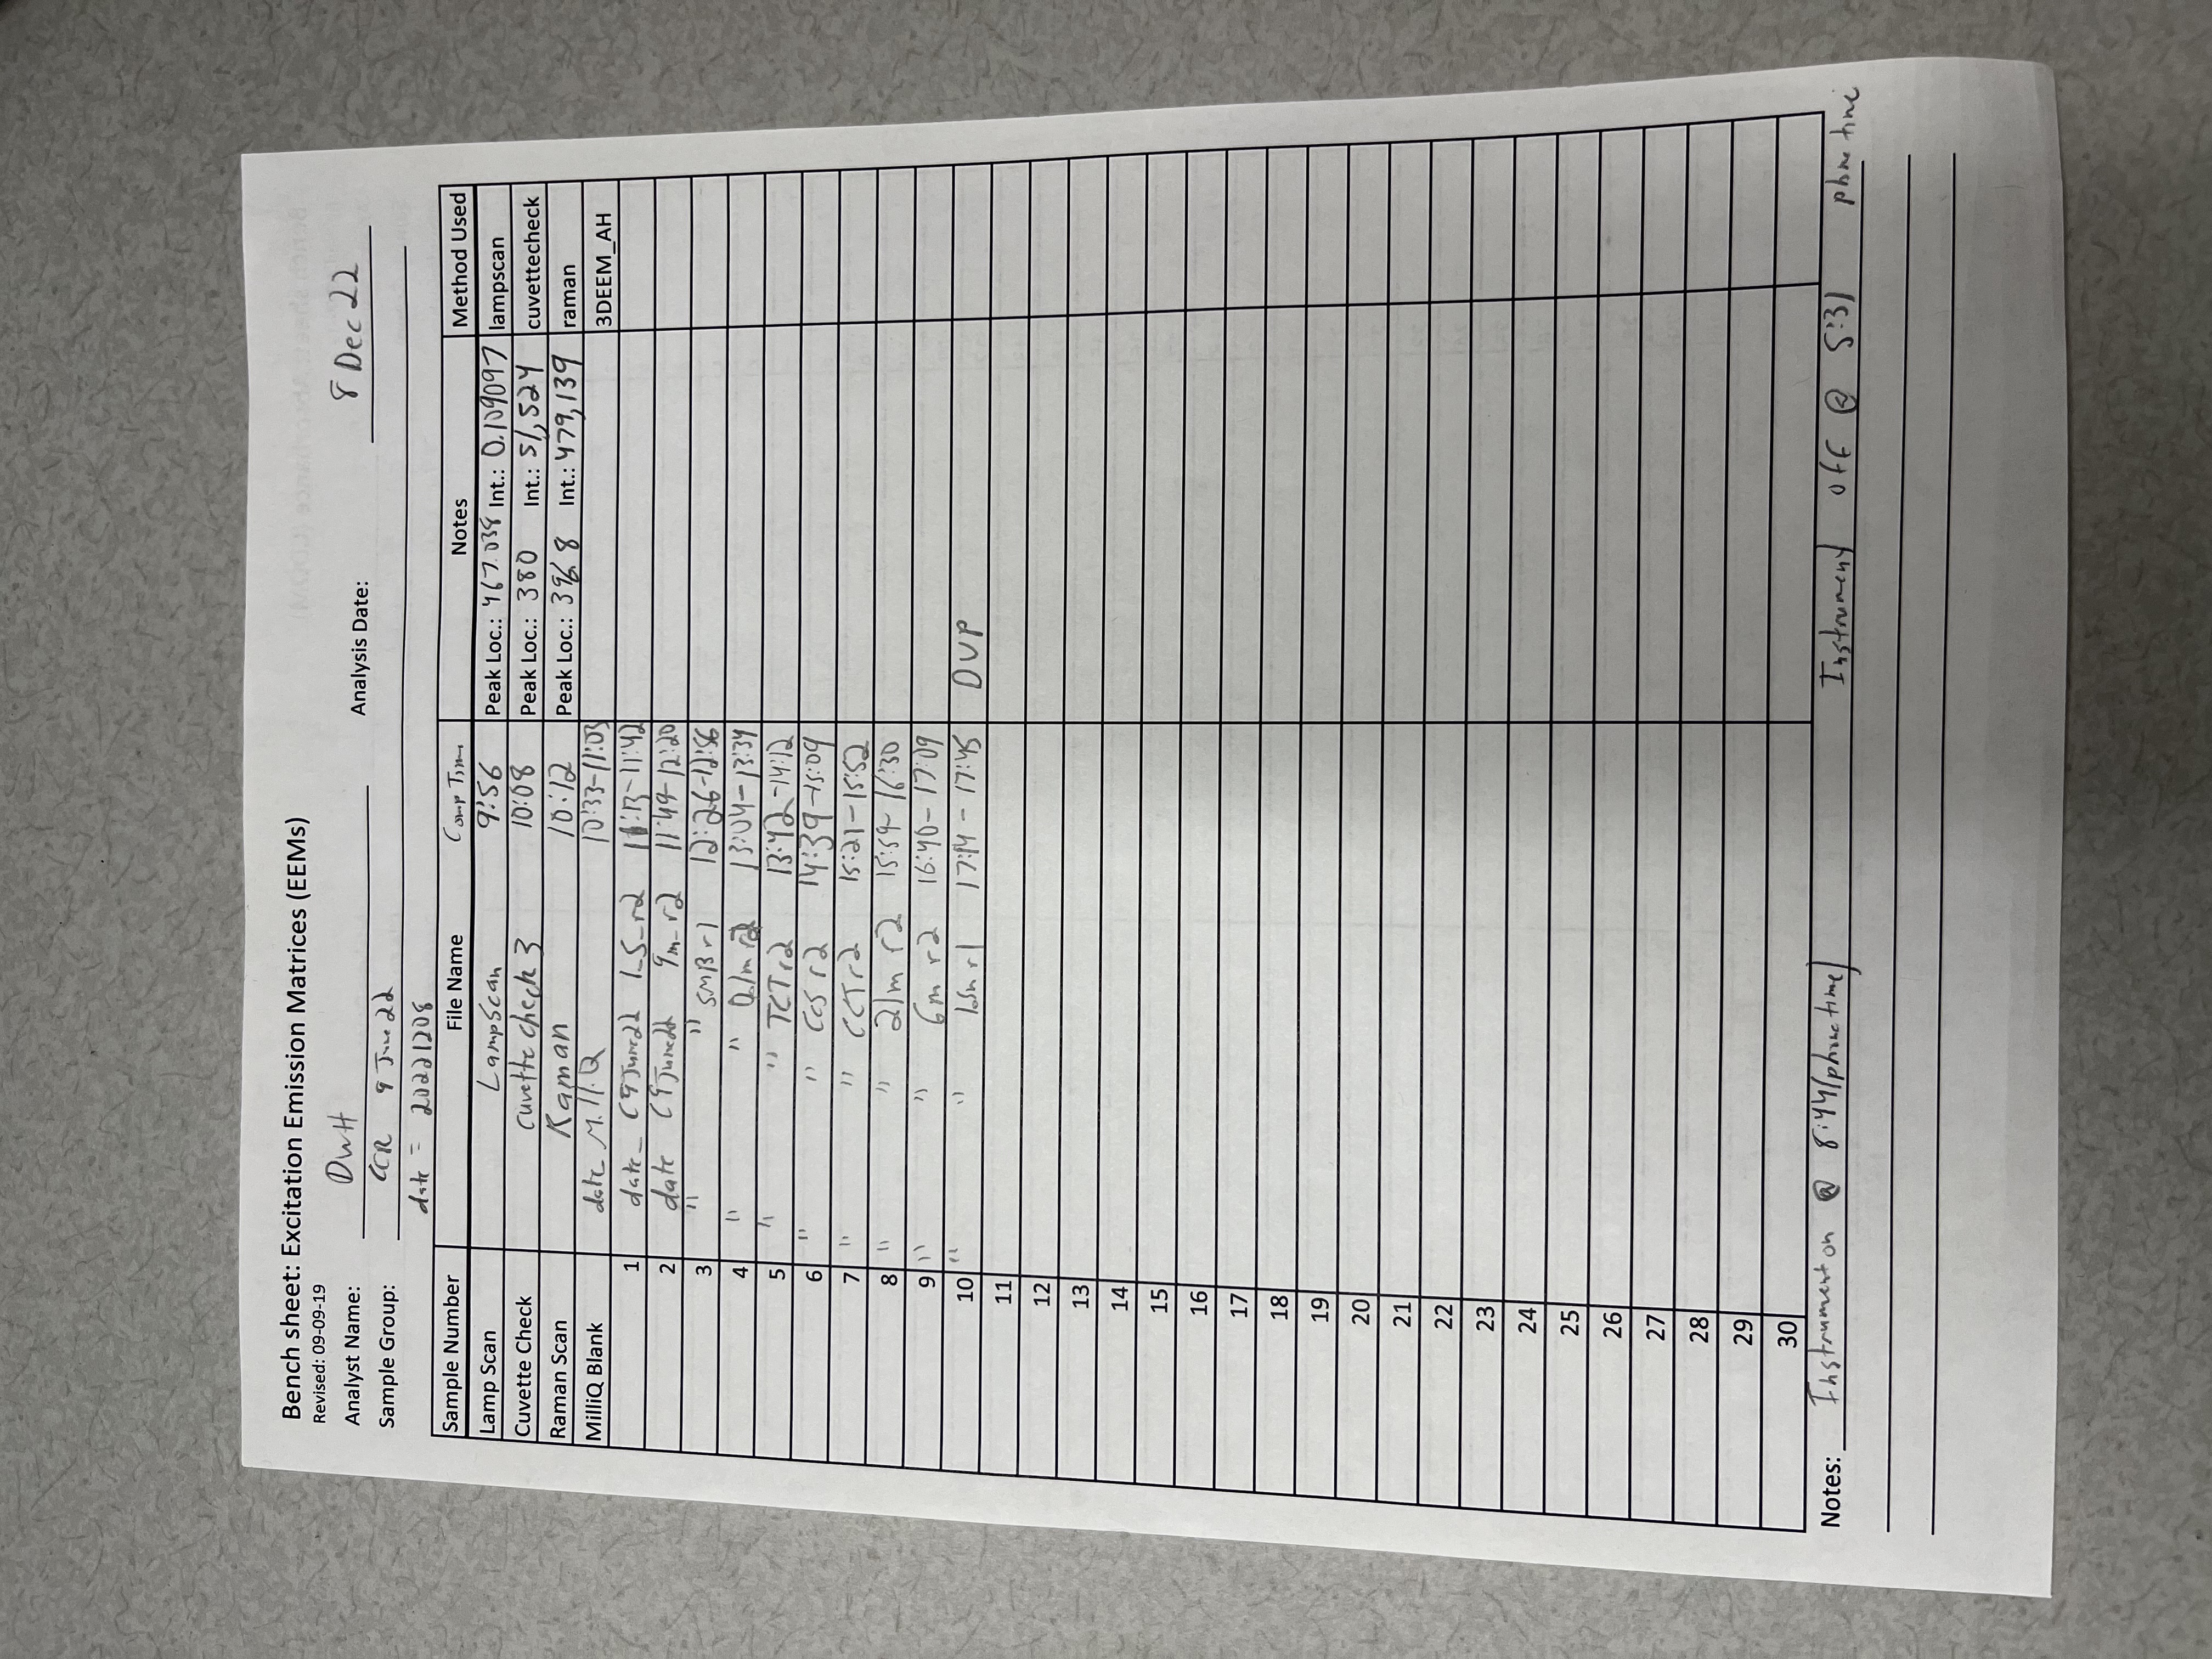 Bench sheet: Excitation Emission Matrices (EEMs)
Revised: 09-09-19
Analyst Name: DWH Analysis Date: 8 Dec 22
Sample Group: CCR 9 June 22
date = 20221208
Sample Number File Name Comp Time Notes Method Used
Lamp Scan LampScan 9:56 Peak Loc.: 467.038 Int.: 0.109097 lampscan
Cuvette Check cuvette check 3 10:08 Peak Loc.: 380 Int.: 51,524 cuvettecheck
Raman Scan Raman 10:12 Peak Loc.: 396.8 Int.: 479,139 raman
MilliQ Blank date MilliQ 10:33-11:03 3DEEM_AH
1 date_ C9June22 1_S_r2 11:13-11:42
2 date C9June22 9m_r2 11:49-12:20
3 " " SMB r1 12:26-12:56
4 " " 0.1m r2 13:04-13:34
5 " " TCT r2 13:42-14:12
6 " " CCS r2 14:39-15:09
7 " " CCT r2 15:21-15:52
8 " " 21m r2 15:59-16:30
9 " " 6m r2 16:40-17:09
10 " " r1 17:14-17:45 DUP
11
12
13
14
15
16
17
18
19
20
21
22
23
24
25
26
27
28
29
30
Notes: Instrument on @ 8:44(phone time) Instrument off @ 5:31 phone time